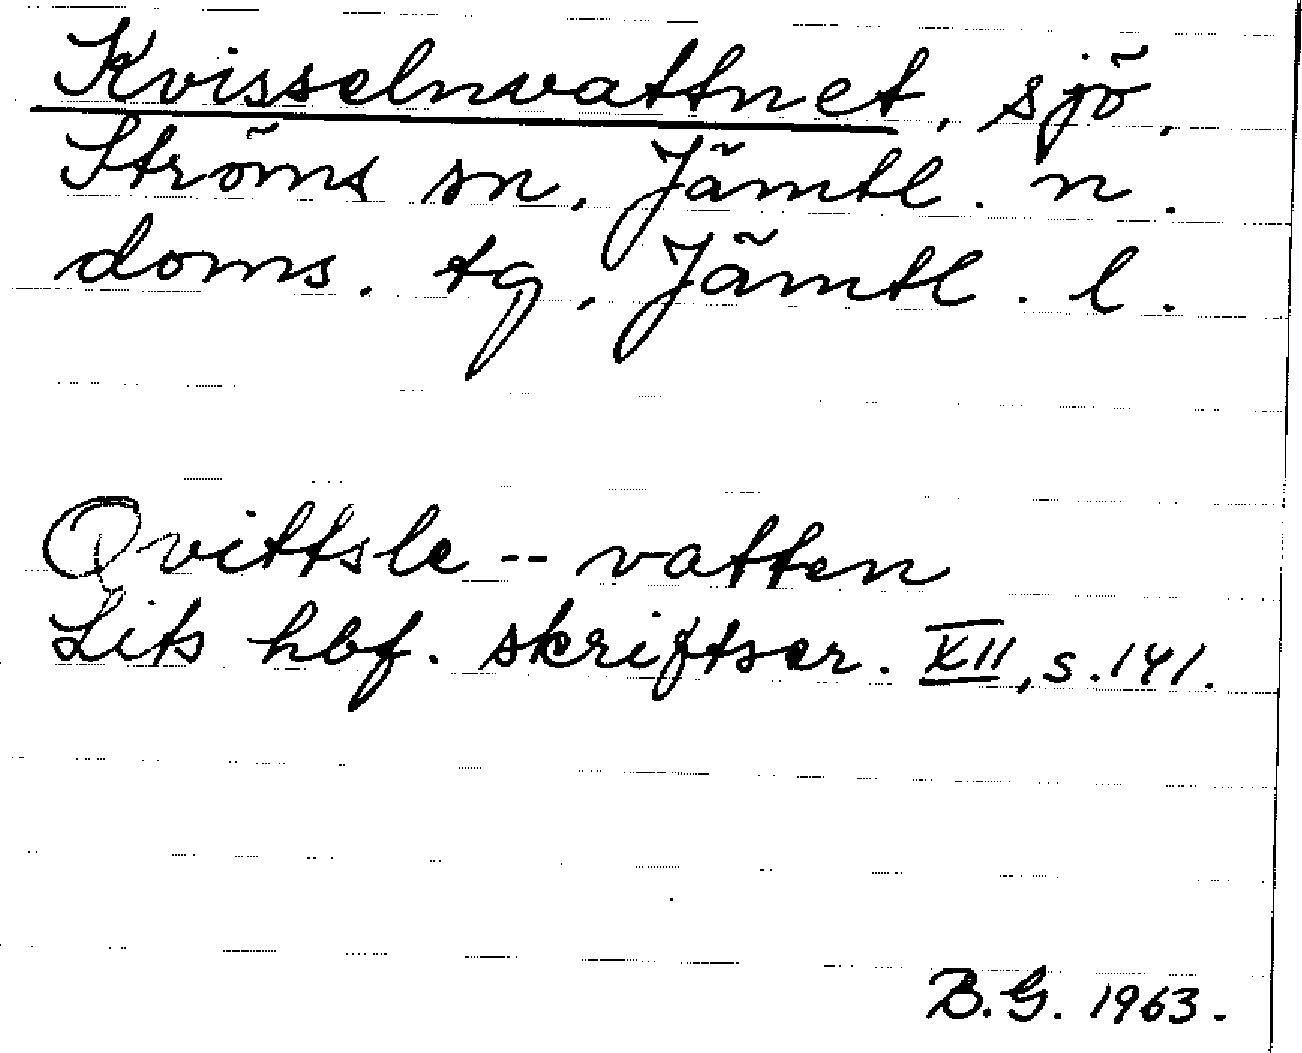 Kvisselnvattnet, sjö,
Ströms sn, Jämtl. n.
doms. tg, Jämtl. l.
Qvittsle -- vatten
Lits hbf. skriftser. XII, s. 141.
B.G. 1963.